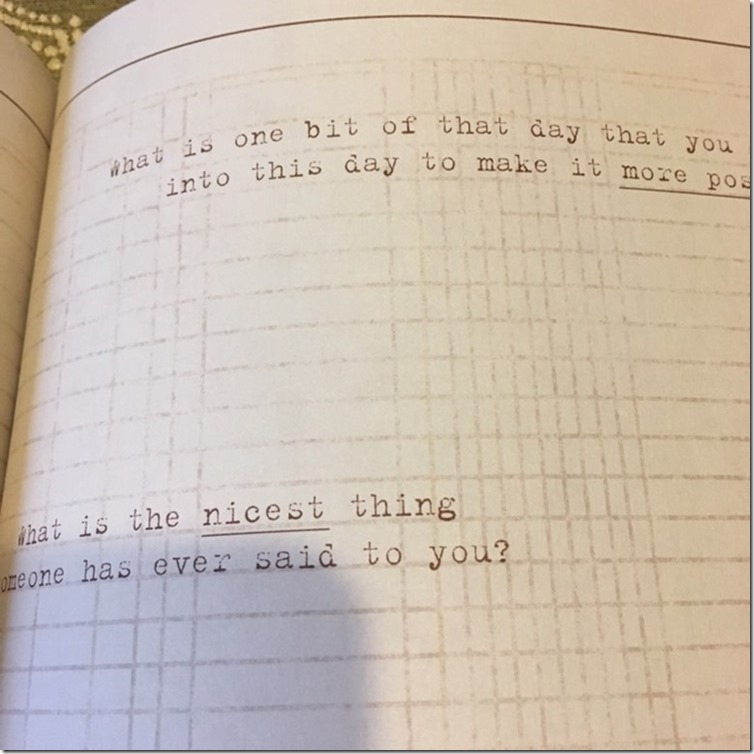 What is one bit of that day that you
into this day to make it more pos
What is the nicest thing
omeone has ever said to you?